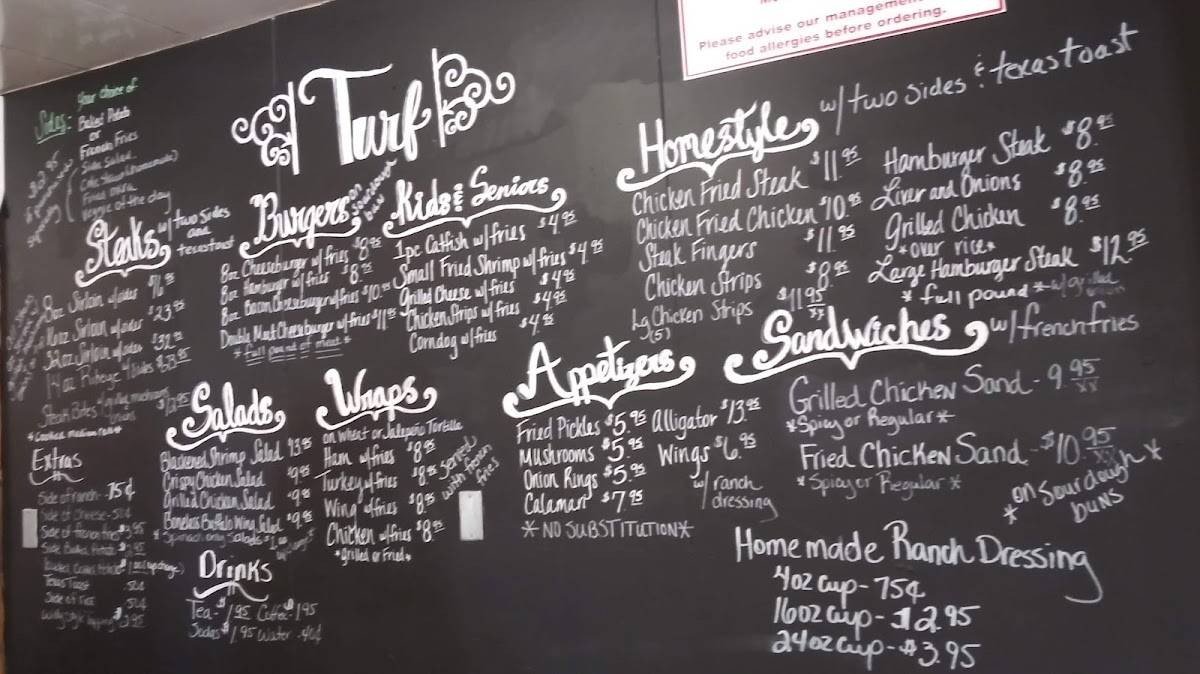 Please advise our management
food allergies before ordering.
Turf
Sides:
Your choice of
Baked Potato
or
French Fries
Side Salad
Veggie of the day
Steaks
w/ two sides
and
texastoast
8oz Sirloin w/sides
Sirloin w/sides $23.95
Sirloin w/sides
14oz Ribeye w/sides
Steak Bites
$12.95
Burgers
on sourdough
bun
8oz Cheeseburger w/fries $8.95
8oz Hamburger w/fries $8.95
8oz Bacon Cheeseburger w/fries $10.95
Double Meat Cheeseburger w/fries $11.95
*full pound of meat*
Kids and Seniors
1pc Catfish w/fries $4.95
Small Fried Shrimp w/fries $4.95
Grilled Cheese w/fries $4.95
Chicken Strips w/fries $4.95
Corndog w/fries $4.95
Homestyle w/two sides & texas toast
Chicken Fried Steak $11.95
Chicken Fried Chicken $10.95
Steak Fingers $11.95
Chicken Strips $8.95
Lg Chicken Strips $11.95
(5)
Hamburger Steak $8.95
Liver and Onions $8.95
Grilled Chicken $8.95
*over rice*
Large Hamburger Steak $12.95
*full pound* w/grilled
Salads
Blackened Shrimp Salad 13.95
Crispy Chicken Salad $9.95
Grilled Chicken Salad $9.95
Boneless Buffalo Wing Salad $9.95
Wraps
on Wheat or Jalapeño Tortilla
Ham w/fries $8.95
Turkey w/fries $8.95
Wing w/fries $8.95
Chicken w/fries $8.95
*Grilled or Fried*
served
with french
fries
Appetizers
Fried Pickles $5.95
Mushrooms $5.95
Onion Rings $5.95
Calamari $7.95
Alligator $13.95
Wings $6.95
w/ ranch
dressing
*NO SUBSTITUTION*
Sandwiches w/frenchfries
Grilled Chicken Sand - 9.95
*Spicy or Regular*
Fried Chicken Sand - $10.95
*Spicy or Regular*
*on Sourdough*
BUNS
Extras
Side of ranch - 75¢
Side of cheese - 50¢
Side of french fries
Side Baked Potato
Texas Toast 50¢
Side of 50¢
Drinks
Tea - $1.95 Coffee $1.95
Sodas $1.95 Water .40¢
Home made Ranch Dressing
4oz cup - 75¢
16oz cup - $12.95
24oz cup - $3.95